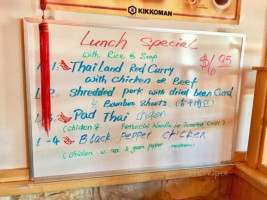 KIKKOMAN
Lunch Special
with Rice & Soup
$6.95
Thailand Red Curry
with chicken or Beef
shredded pork with dried bean Curd
& Bamboo Shoots
Pad Thai chicken
(chicken &
L-4. Black Pepper chicken
(chicken w. red & green pepper